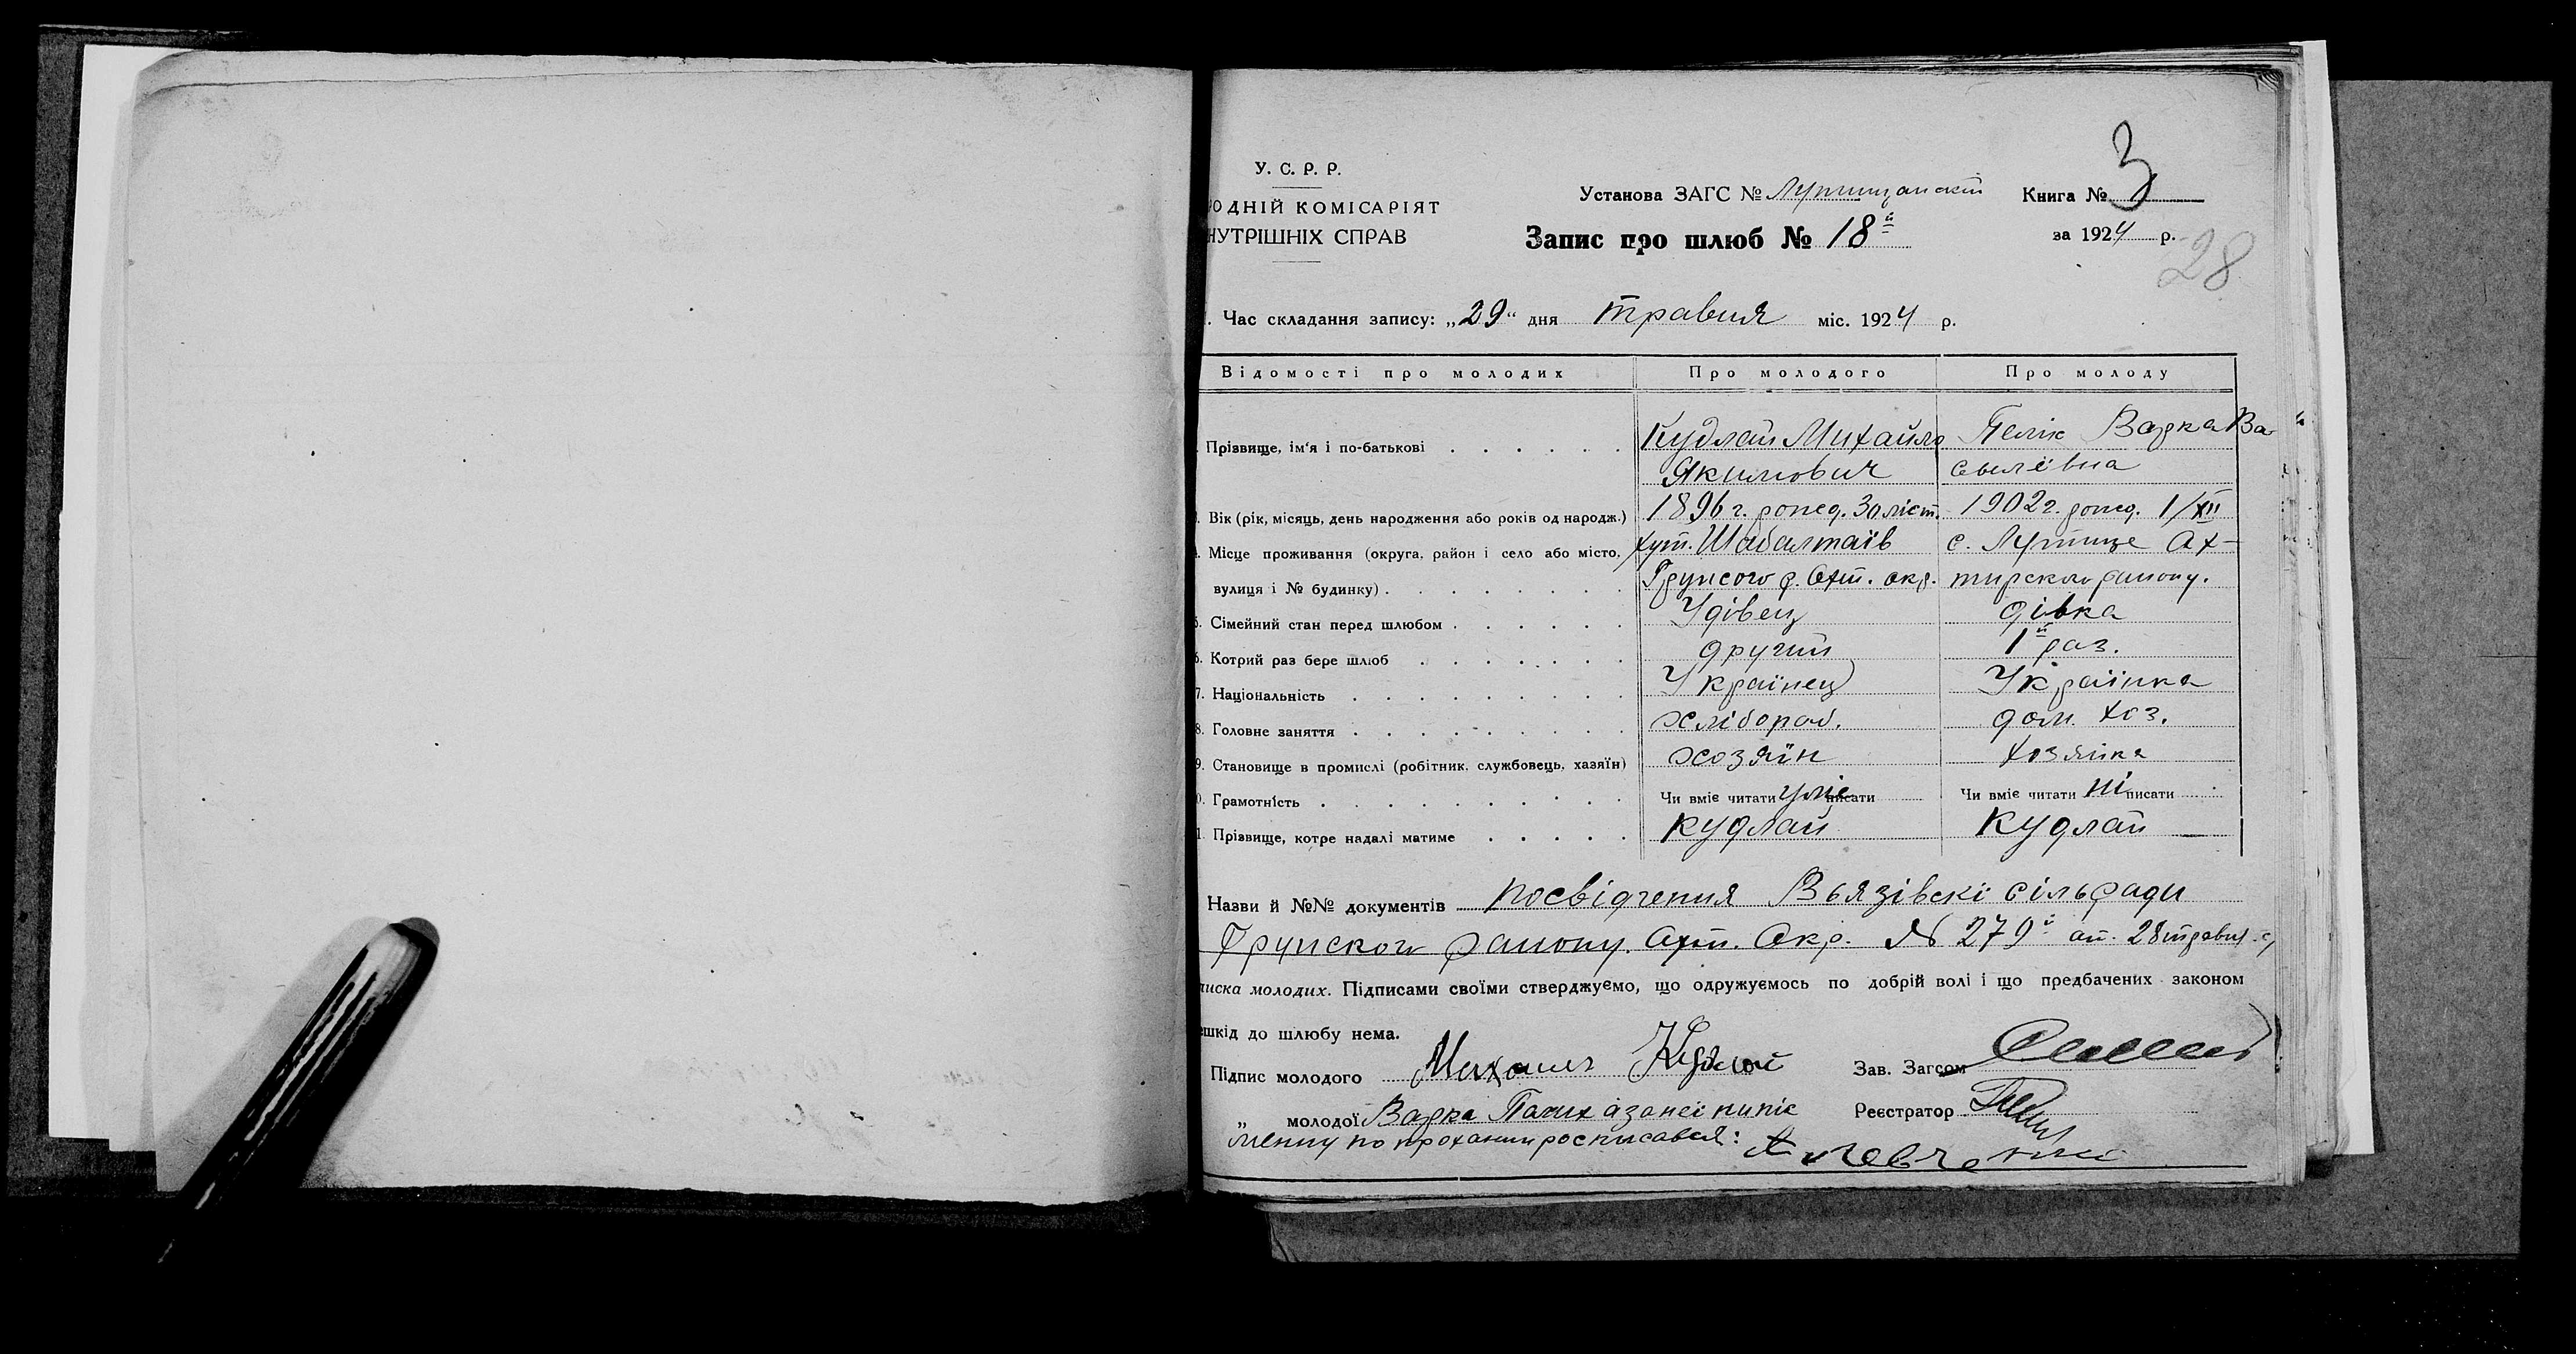 У. С. Р. Р.
ОДНІЙ КОМІСАРІЯТ
НУТРІШНІХ СПРАВ
Установа ЗАГС №
Книга № 3
Запис про шлюб № 18й
за 1924 р.
28
. Час складання запису: „29“ дня травня міс. 1924 р.
Відомості про молодих Про молодого Про молоду
Прізвище, ім'я і по-батькові Кудлай Михайло Пелік Варка Ва
Якимович сылёвна
Вік (рік, місяць, день народження або років од народж.) 1896 г. ропед. 30 ліст. 1902 г. ропед. 1/XII
Місце проживання (округа, район і село або місто, хут. Шабалтаів с. Лутище Ах-
вулиця і № будинку) Грунсого р. Охт. окр. тирского району.
Сімейний стан перед шлюбом Удівец дівка
Котрий раз бере шлюб другий 1й раз.
7. Національність Українец Українка
8. Головне заняття хлібороб. дом. хоз.
9. Становище в промислі (робітник, службовець, хазяїн) хозяїн хозяйка
0. Грамотність Чи вміє читати уміє писати Чи вміє читати ні писати
1. Прізвище, котре надалі матиме Кудлай Кудлай
Назви й №№ документів посвідчення Вьязівскі сільради
Грунского району Охт. Окр. № 279й от 28 травня
писка молодих. Підписами своїми стверджуємо, що одружуємось по добрій волі і що предбачених законом
ешкід до шлюбу нема.
Підпис молодого Михаил Кудлай Зав. Загсом
„ молодої Варка а за неї Реєстратор
по проханню росписався: